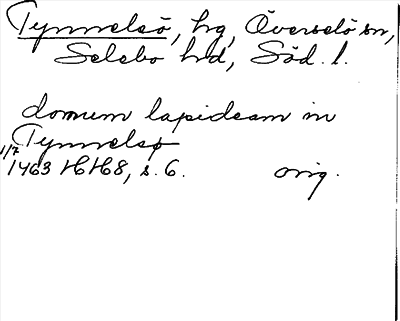 Tynnelsö, hg, Överselö sn,
Selebo hd, Söd. l.
domum lapideam in
Tynnelsø
1/7
1463 HH8, s. 6. orig.